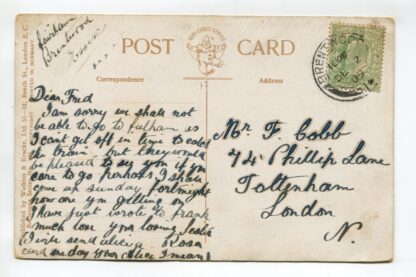 Fairham
Brentwood
Essex
POST CARD
Correspondence
Address
BRENTWOOD
Published by Watkins & Kracke, Ltd. 51-52, Beech St., London E.C.
PRINTED IN GERMANY
Dear Fred
I am sorry we shall not
be able to go to fulham as
I can't get off in time to catch
the train but they would
be pleased to see you if you
care to go perhaps I shall
come up sunday fortnight
how are you getting on
I have just wrote to frank
much love your loving
Rosa
I write send alice a
card one day your alice I mean
Mr F. Cobb
74 Phillip Lane
Tottenham
London
N.